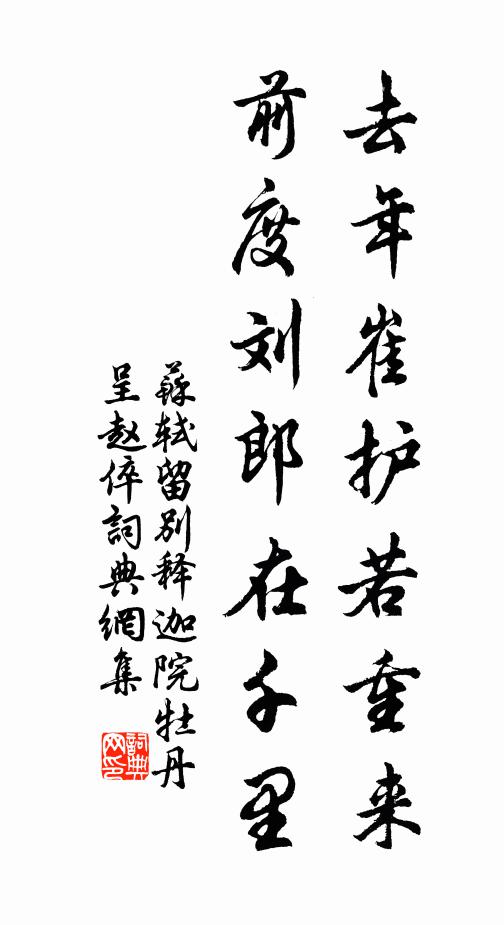 去年崔护若重来
前度刘郎在千里
蘇轼留别释迦院牡丹
呈赵倅詞典網集
詞典网印